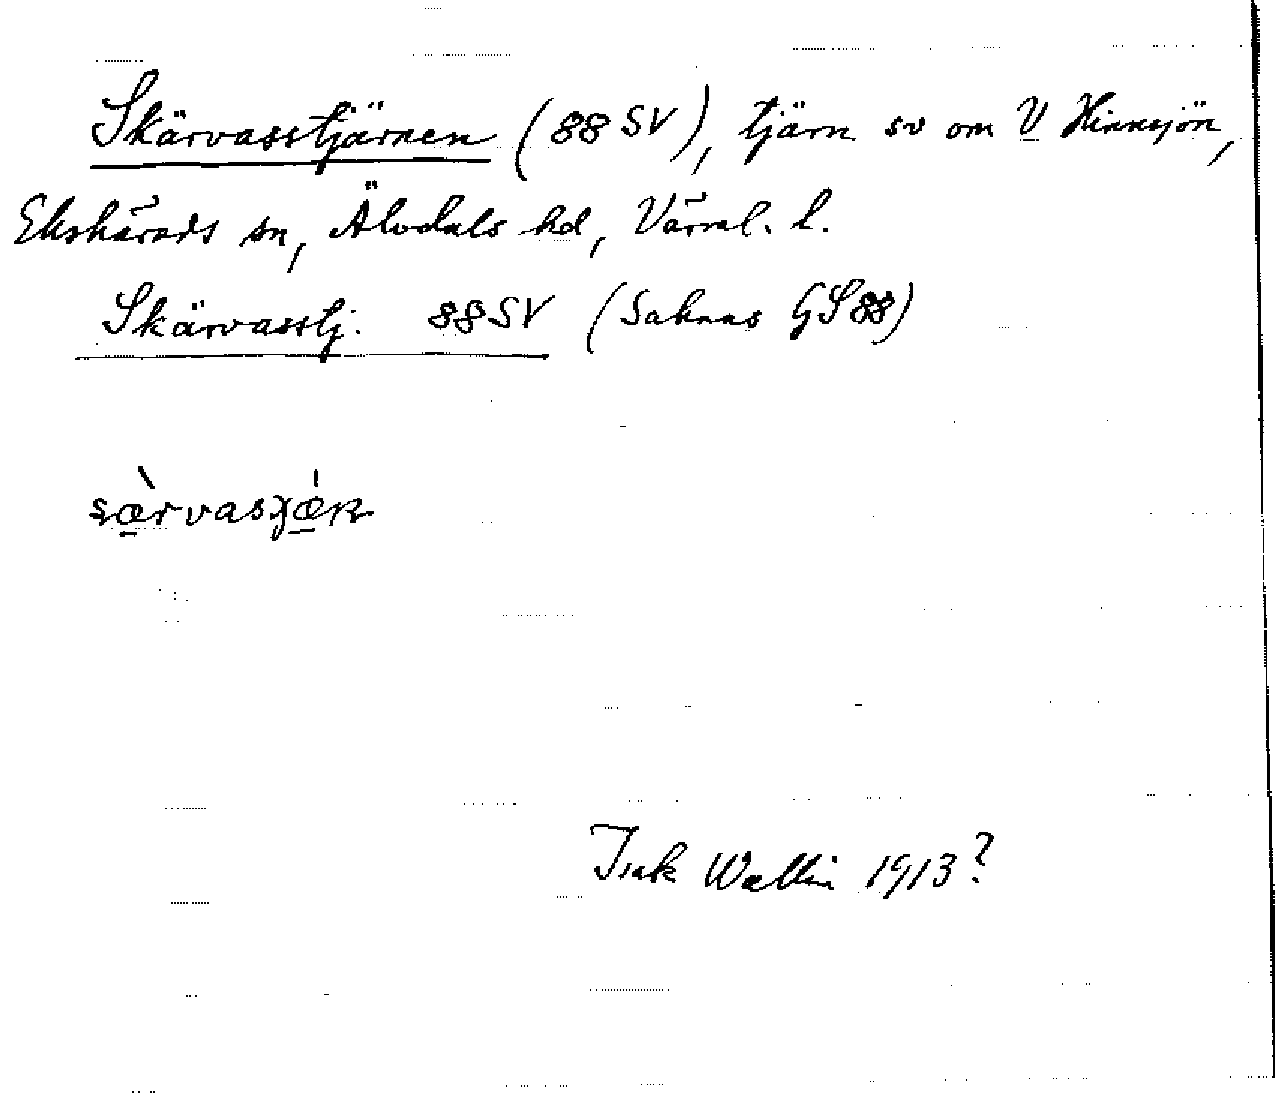 Skärvasstjärnen (88 SV), tjärn sv om V Hinnsjön,
Ekshärads sn, Älvdals hd, Värml. l.
Skärvasstj. 88 SV (Saknas GS 88)
Isak Wallin 1913?